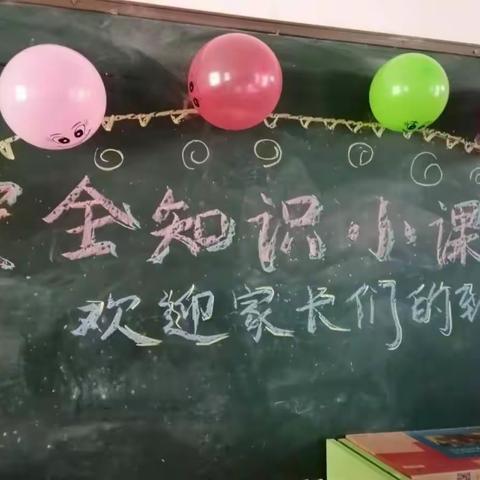 安全知识小课
欢迎家长们的到